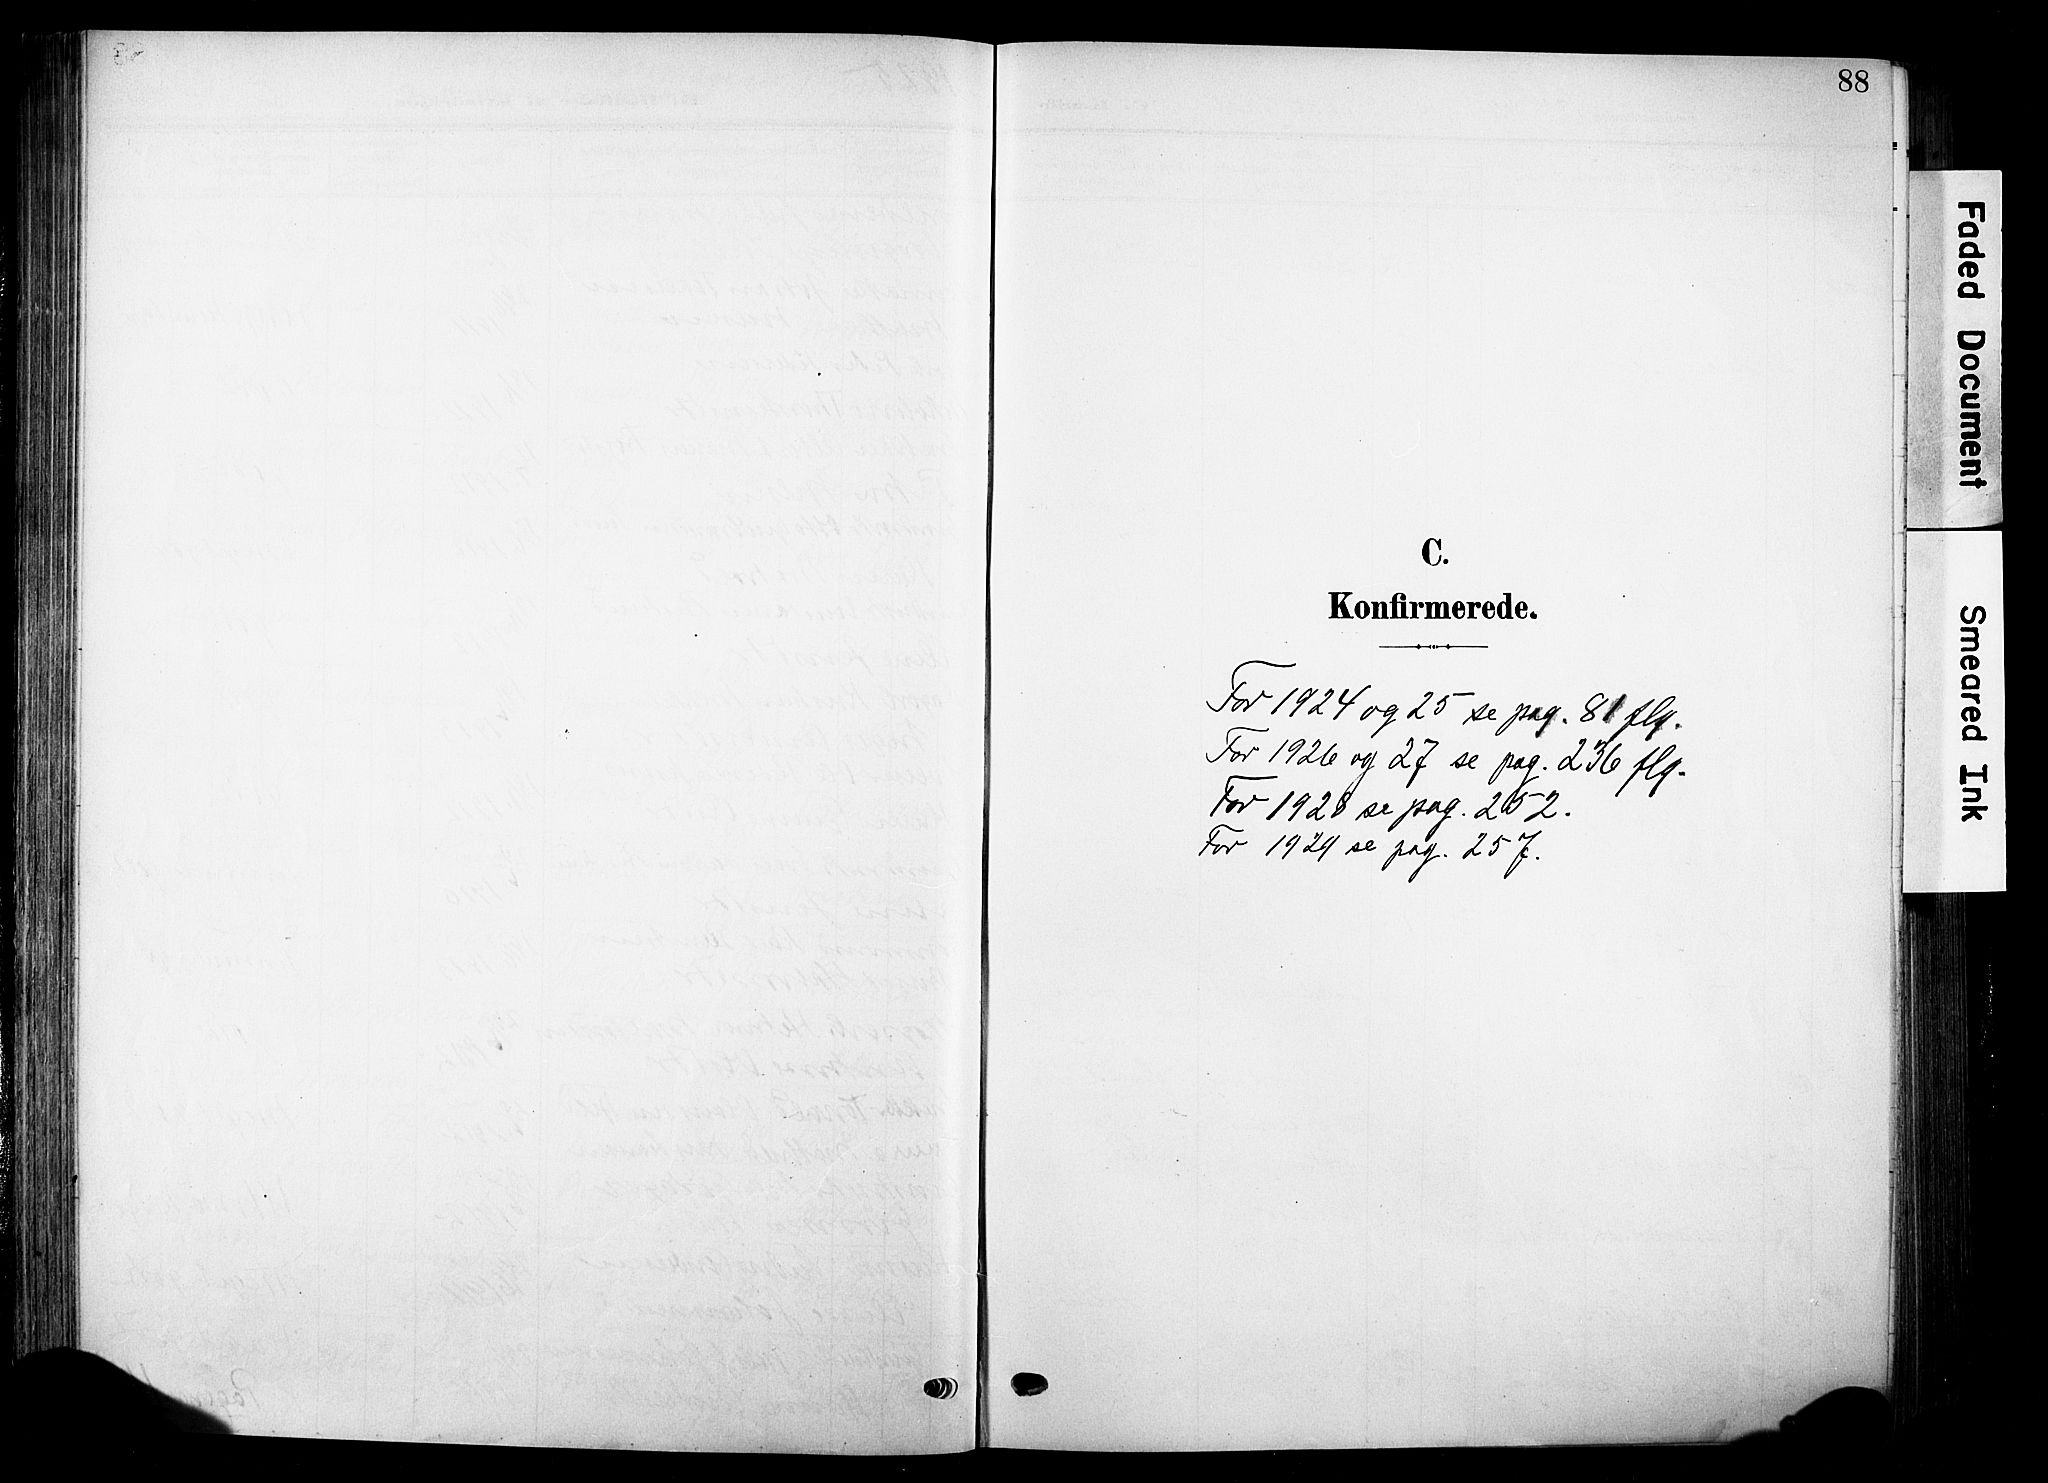 88
C.
Konfirmerede.
For 1924 og 25 se pag. 81 flg.
For 1926 og 27 se pag. 236 flg.
For 1928 se pag. 252.
For 1929 se pag. 257.
Faded Document
Smeared Ink